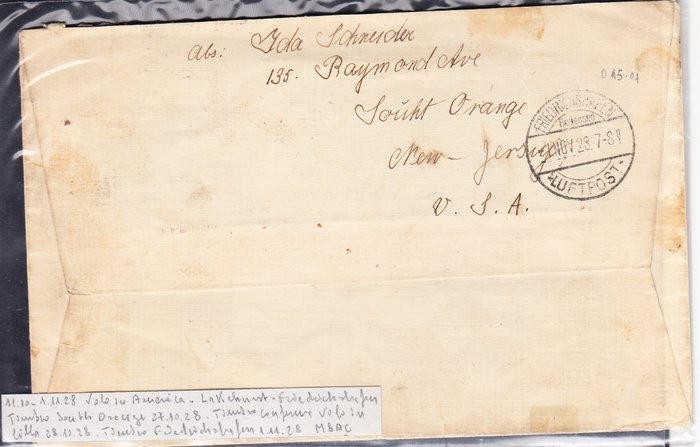 abs: Ida Schneider
135. Raymond Ave
Souht Orange
New-Jersey
U. S. A.
D 15-01
FRIEDRICHSHAFEN
Bodensee
NOV 28. 7-8 V
LUFTPOST
11.10-1.11.28 Volo in America - Lakehurst - Friedrichshafen
Timbro South Orange 27.10.28. Timbro conferma volo in
28.10.28. Timbro Friedrichshafen 1.11.28 MBAC